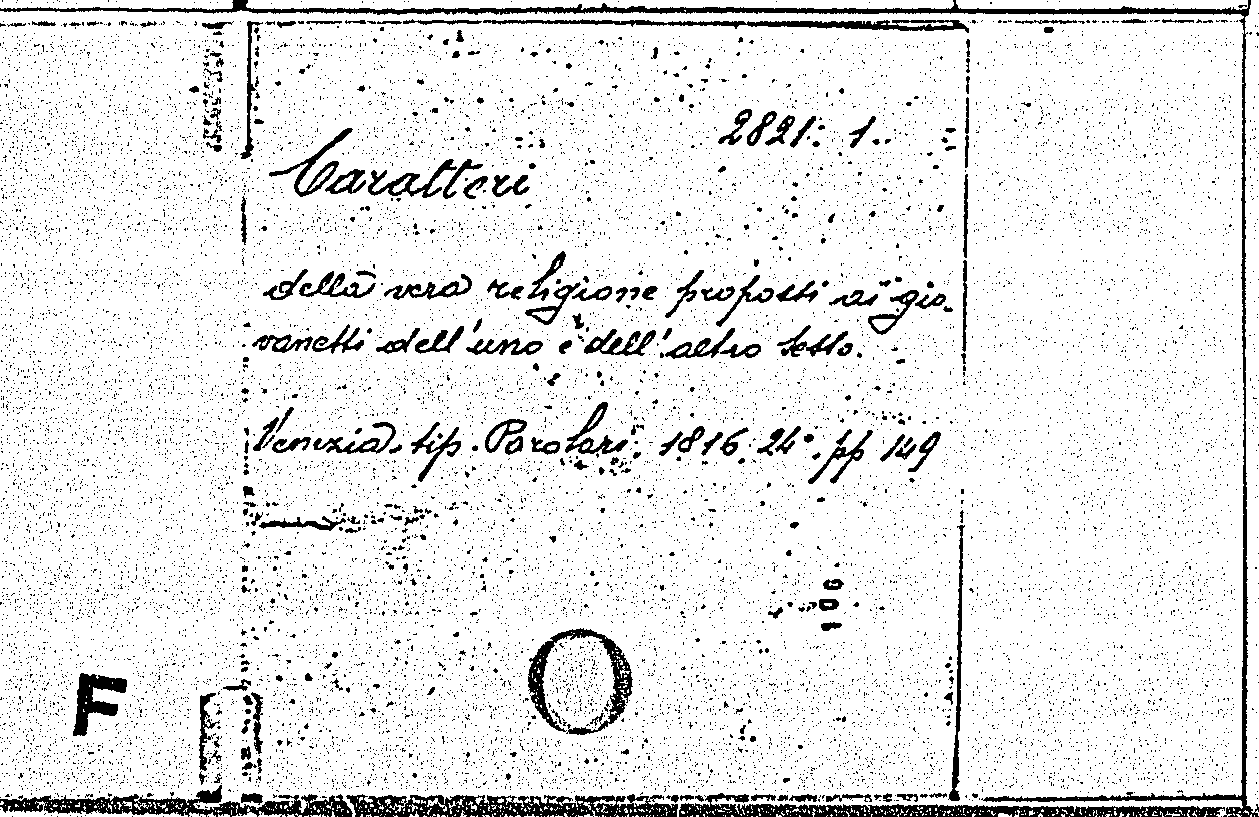 2821: 1.
Caratteri
della vera religione proposti ai gio-
vanetti dell'uno e dell'altro sesso.
Venezia, tip. Parolari. 1816. 24°. pp 149
106
F